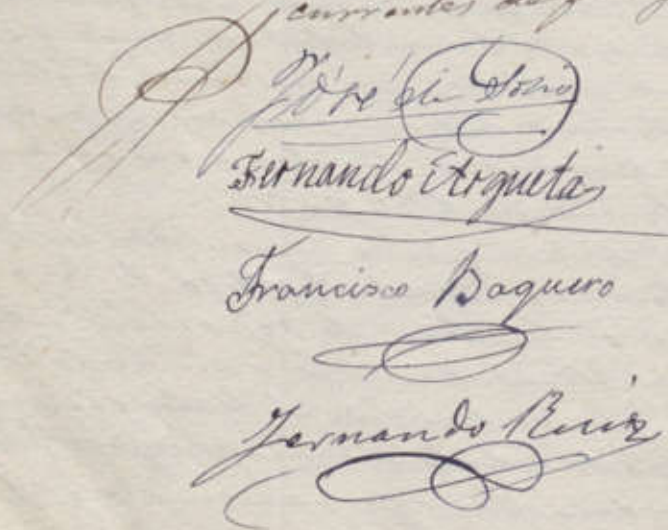 José de
Fernando Argueta
Francisco Baquero
Fernando Ruiz